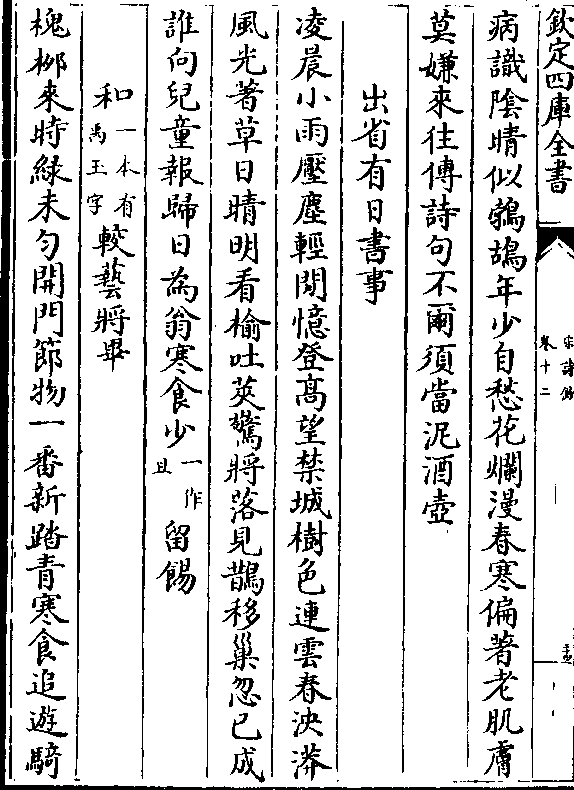 欽定四庫全書
宋詩鈔
卷十二
病識陰晴似鵓鴣年少自愁花爛漫春寒偏著老肌膚
莫嫌來往傳詩句不爾須當泥酒壺
出省有日書事
凌晨小雨壓塵輕閒憶登髙望禁城樹色連雲春泱漭
風光著草日晴明看榆吐莢驚將落見鵲移巢忽已成
誰向兒童報歸日為翁寒食少一作且留餳
和一本有禹玉字較藝將畢
槐栁來時緑未勻開門節物一番新踏青寒食追遊騎